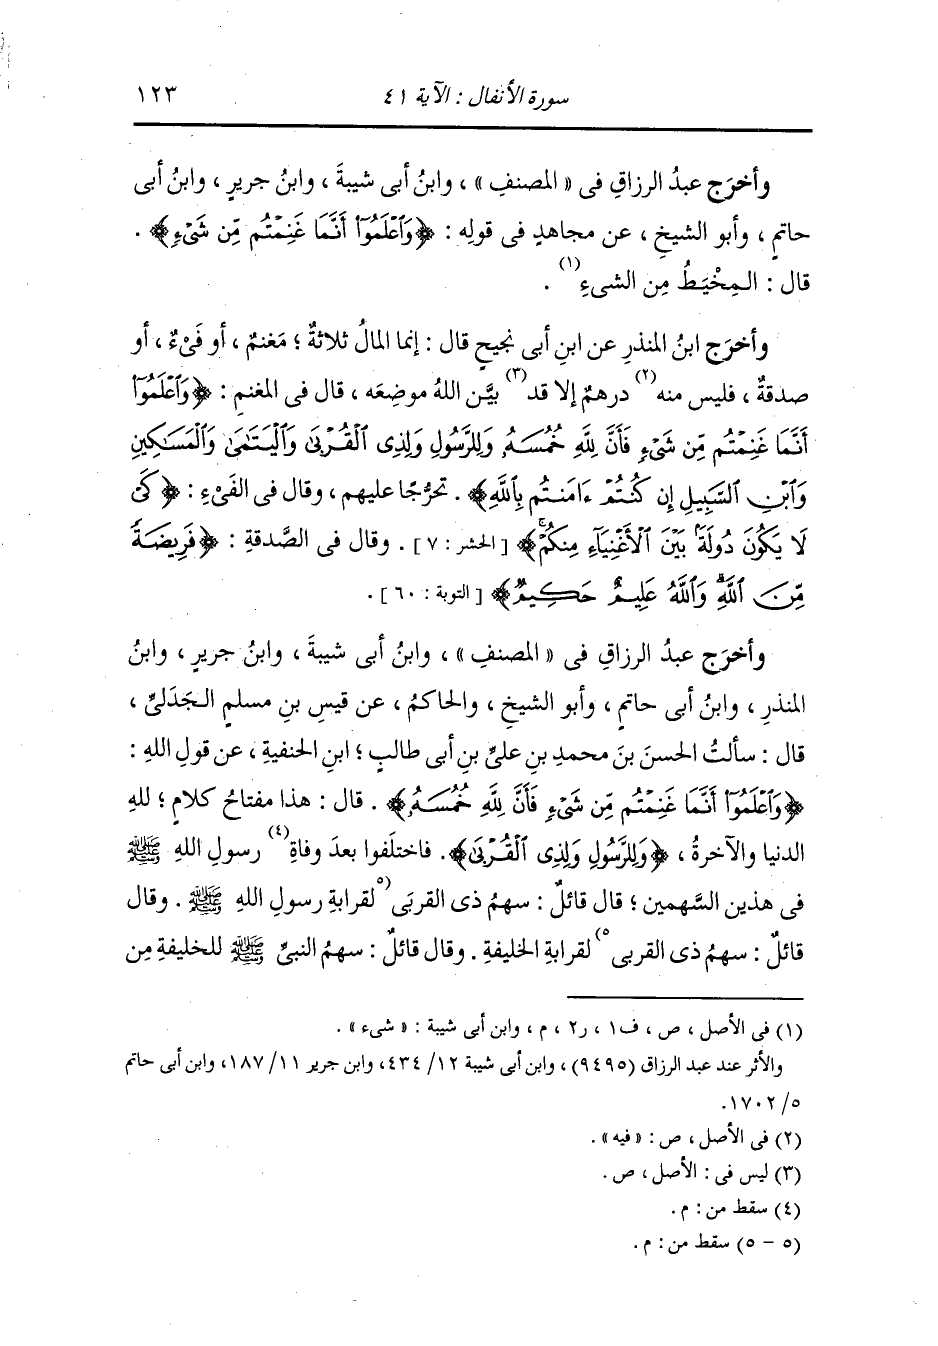 سورة الأنفال : الآية ٤١ ١٢٣
وأخرَج عبدُ الرزاقِ فى « المصنفِ » ، وابنُ أبى شيبةَ ، وابنُ جريرٍ ، وابنُ أبى
حاتمٍ ، وأبو الشيخِ ، عن مجاهدٍ فى قولِه : ﴿وَٱعۡلَمُوٓاْ أَنَّمَا غَنِمۡتُم مِّن شَىۡءٍ﴾ .
قال : المِخْيَطُ مِن الشىءِ(١) .
وأخرَج ابنُ المنذرِ عن ابنِ أبى نجيحٍ قال : إنما المالُ ثلاثةٌ ؛ مَغنمٌ ، أو فَىْءٌ ، أو
صدقةٌ ، فليس منه(٢) درهمٌ إلا قد(٣) بيَّن اللهُ موضِعَه ، قال فى المغنمِ : ﴿وَٱعۡلَمُوٓاْ
أَنَّمَا غَنِمۡتُم مِّن شَىۡءٍ فَأَنَّ لِلَّهِ خُمُسَهُۥ وَلِلرَّسُولِ وَلِذِى ٱلۡقُرۡبَىٰ وَٱلۡيَتَٰمَىٰ وَٱلۡمَسَٰكِينِ
وَٱبۡنِ ٱلسَّبِيلِ إِن كُنتُمۡ ءَامَنتُم بِٱللَّهِ﴾ . تحرُّجًا عليهم ، وقال فى الفَىْءِ : ﴿كَىۡ
لَا يَكُونَ دُولَةَۢ بَيۡنَ ٱلۡأَغۡنِيَآءِ مِنكُمۡۚ﴾ [ الحشر : ٧ ] . وقال فى الصَّدقةِ : ﴿فَرِيضَةٗ
مِّنَ ٱللَّهِۗ وَٱللَّهُ عَلِيمٌ حَكِيمٌ﴾ [ التوبة : ٦٠ ] .
وأخرَج عبدُ الرزاقِ فى « المصنفِ » ، وابنُ أبى شيبةَ ، وابنُ جريرٍ ، وابنُ
المنذرِ ، وابنُ أبى حاتمٍ ، وأبو الشيخِ ، والحاكمُ ، عن قيسِ بنِ مسلمٍ الجَدَلىِّ ،
قال : سألتُ الحسنَ بنَ محمدِ بنِ علىِّ بنِ أبى طالبٍ ؛ ابنِ الحنفيةِ ، عن قولِ اللهِ :
﴿وَٱعۡلَمُوٓاْ أَنَّمَا غَنِمۡتُم مِّن شَىۡءٍ فَأَنَّ لِلَّهِ خُمُسَهُۥ﴾ . قال : هذا مفتاحُ كلامٍ ؛ للهِ
الدنيا والآخرةُ ، ﴿وَلِلرَّسُولِ وَلِذِى ٱلۡقُرۡبَىٰ﴾ . فاختلَفوا بعدَ وفاةِ(٤) رسولِ اللهِ ﷺ
فى هذين السَّهمين ؛ قال قائلٌ : سهمُ ذى القربَى (٥لقرابةِ رسولِ اللهِ ﷺ . وقال
قائلٌ : سهمُ ذى القربى٥) لقرابةِ الخليفةِ . وقال قائلٌ : سهمُ النبىِّ ﷺ للخليفةِ مِن
(١) فى الأصل ، ص ، ف١ ، ر٢ ، م ، وابن أبى شيبة : « شىء » .
والأثر عند عبد الرزاق (٩٤٩٥) ، وابن أبى شيبة ١٢/ ٤٣٤، وابن جرير ١١/ ١٨٧، وابن أبى حاتم
٥/ ١٧٠٢.
(٢) فى الأصل ، ص : « فيه » .
(٣) ليس فى : الأصل ، ص .
(٤) سقط من : م .
(٥ – ٥) سقط من : م .